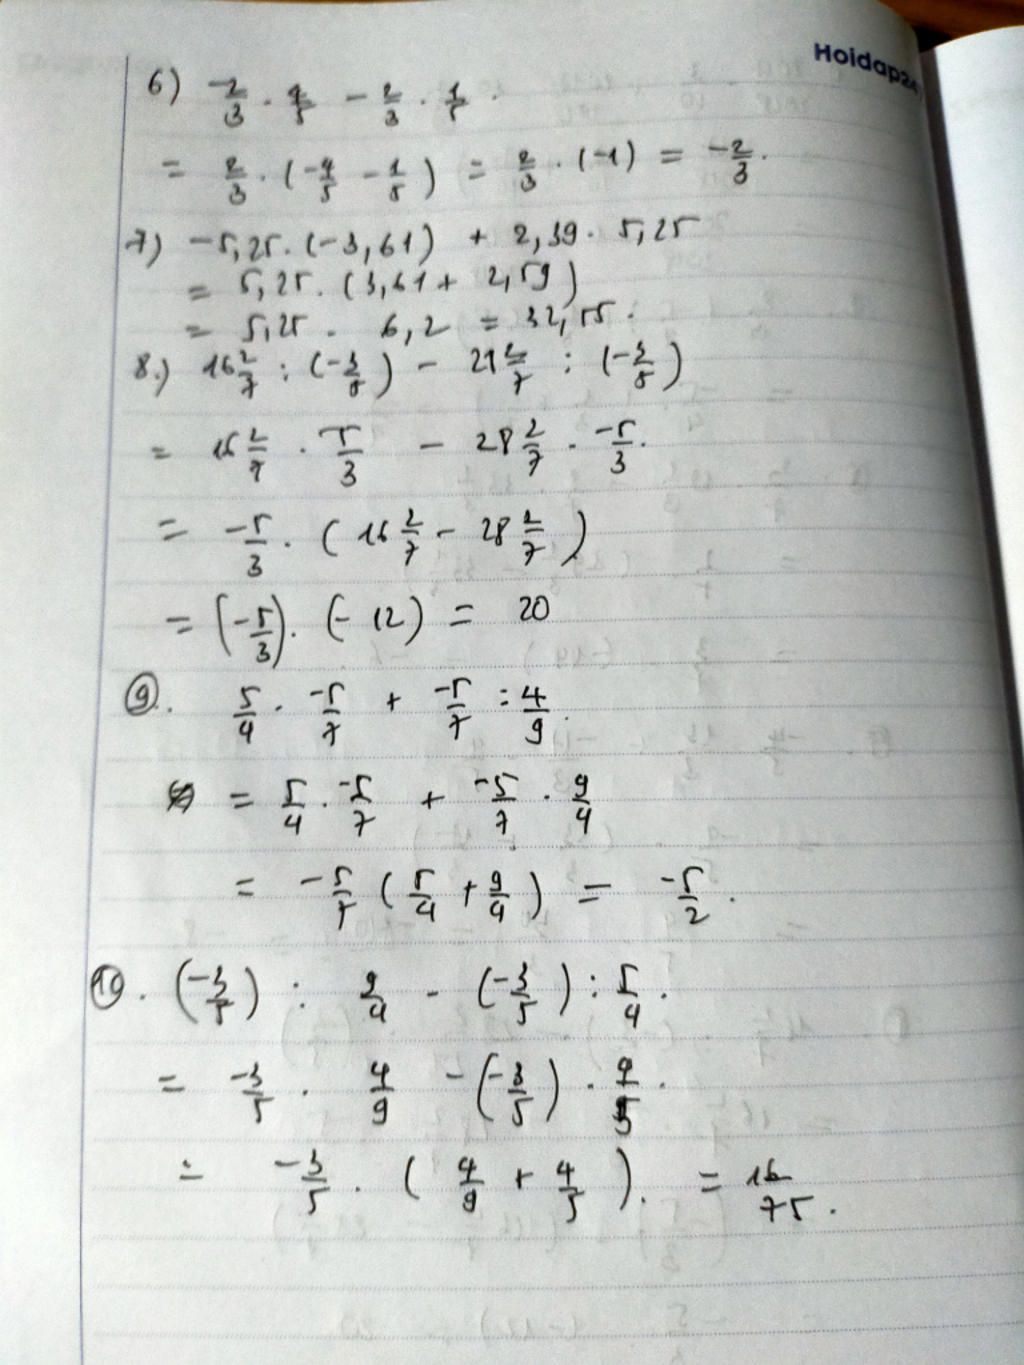 Hoidap24
6) -2/3 . 4/5 - 2/3 . 1/5 .
= 2/3 . (-4/5 - 1/5) = 2/3 . (-1) = -2/3 .
7) -5,25 . (-3,61) + 2,39 . 5,25
= 5,25 . (3,61 + 2,59)
= 5,25 . 6,2 = 32,55 .
8.) 16 2/7 : (-3/5) - 28 2/7 : (-3/5)
= 16 2/7 . 5/3 - 28 2/7 . -5/3 .
= -5/3 . (16 2/7 - 28 2/7)
= (-5/3) . (-12) = 20
9. 5/4 . -5/7 + -5/7 : 4/9 .
= 5/4 . -5/7 + -5/7 . 9/4
= -5/7 (5/4 + 9/4) = -5/2 .
10. (-3/5) : 9/4 - (-3/5) : 5/4 .
= -3/5 . 4/9 - (-3/5) . 4/5 .
= -3/5 . (4/9 + 4/5) . = 16/75 .